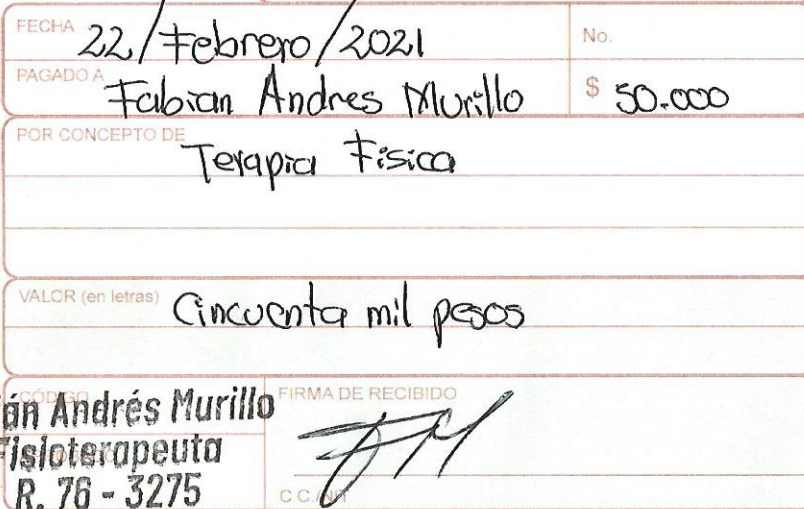 FECHA 22/Febrero/2021 No.
PAGADO A Fabian Andres Murillo $ 50.000
POR CONCEPTO DE Terapia Fisica
VALOR (en letras) Cincuenta mil pesos
CÓDIGO FIRMA DE RECIBIDO
án Andrés Murillo
Fisioterapeuta
R. 76 - 3275
C.C./NIT